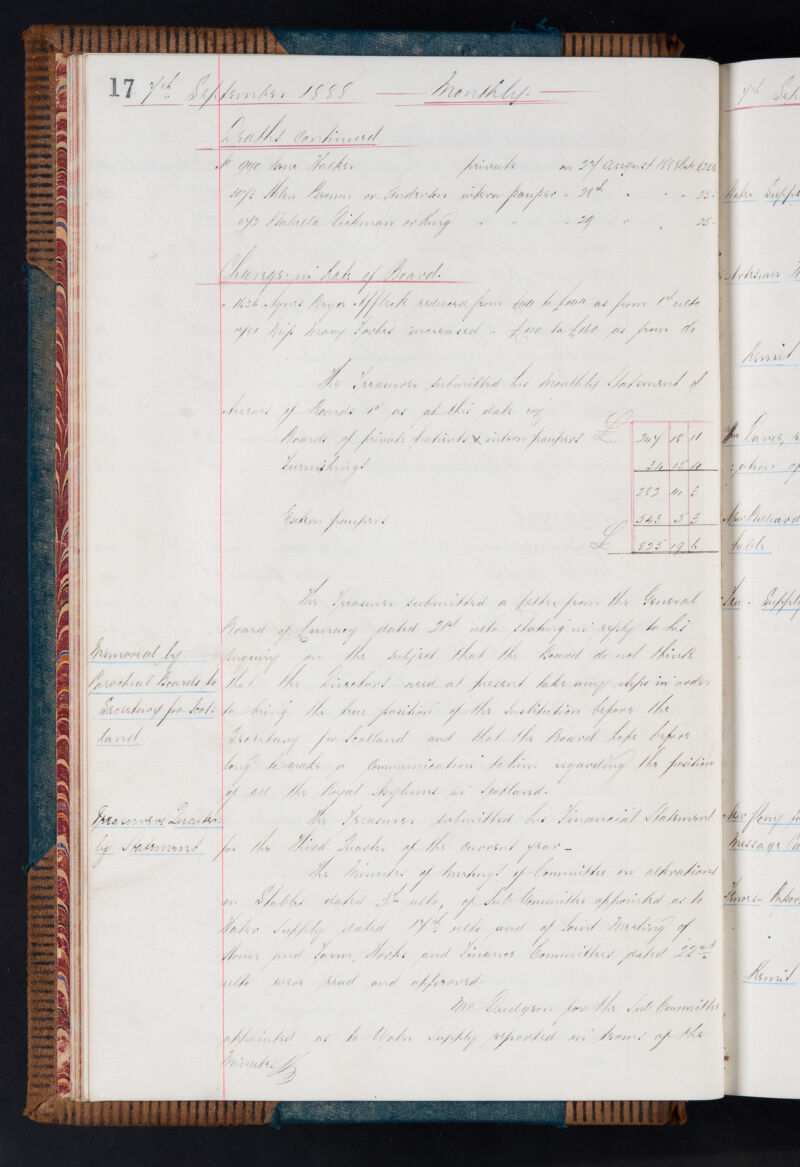 17 7th September 1888 Monthly
Deaths continued
private on 27 August 1888
Brown or Anderson intern pauper " 28th " " " 25
" " " 29 " " 25
Change in rate of Board.
Agnes Affleck reduced from to as from 1st ulto
Miss Mary Forbes increased " to as from do
The Treasurer submitted his Monthly Statement of
Arrears of Boards as at this date viz
Boards of private patients & intern paupers £ 247 18 11
Furnishings 34 15 4
282 14 3
Extern paupers 543 5 3
£ 825 19 6
The Treasurer submitted a letter from the General
Board of Lunacy dated 21st ulto stating in reply to his
Memorial by
Parochial Boards to
Secretary for Scot-
land
Enquiry on the subject that the Board do not think
that the Directors need at present take any steps in order
to bring the true position of the Institution before the
Secretary for Scotland and that the Board hope before
long to make a communication to him regarding the position
of all the Royal Asylums in Scotland.
Treasurers Quarter-
ly Statement
The Treasurer submitted his Financial Statement
for the Third Quarter of the current year
The Minutes of Meetings of Committee on alterations
on Stables dated 3rd ulto, of Sub Committee appointed as to
Water Supply dated 17th ulto and of Joint Meeting of
House and Farm, Works and Finance Committees dated 22nd
ulto were read and approved
Mr for the Sub Committee
appointed as to Water Supply reported in terms of the
Minutes
7th Sep
Water Supply
Artesian
Remit
New Billiard
table
Supply
New Pony
Message
Remit